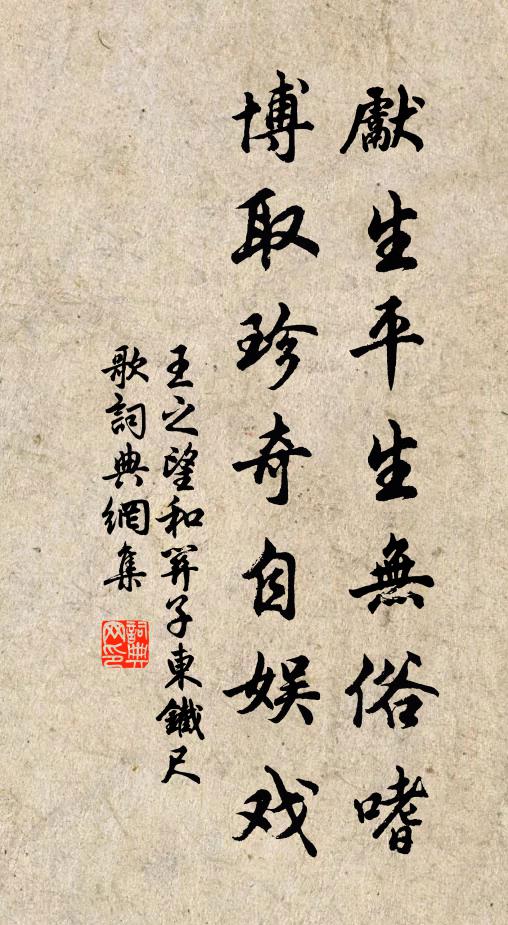 獻生平生無俗嗜
博取珍奇自娱戏
王之望和羿子東鐵尺
歌詞典網集
詞典網印